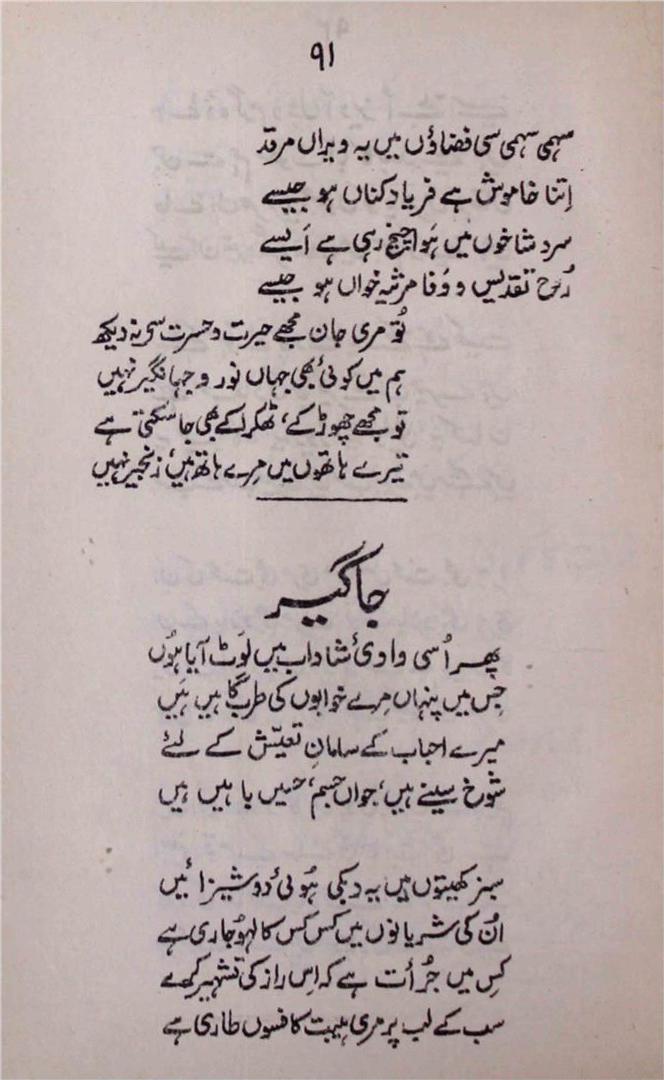 ۹۱
سہمی سہمی سی فضاؤں میں یہ ویراں مرقد
اِتنا خاموش ہے فریاد کناں ہو جیسے
سرد شاخوں میں ہَوا چیخ رہی ہے اَیسے
رُوحِ تقدیس و وَفا مرثیہ خواں ہو جیسے
تُو مری جان مجھے حیرت و حسرت سے نہ دیکھ
ہم میں کوئی بھی جہاں نور و جہانگیر نہیں
تو مجھے چھوڑ کے، ٹھکرا کے بھی جا سکتی ہے
تیرے ہاتھوں میں مِرے ہاتھ ہیں، زنجیر نہیں
جاگیر
پھر اُسی وادیٔ شاداب میں لَوٹ آیا ہُوں
جِس میں پنہاں مِرے خوابوں کی طرب گاہیں ہَیں
میرے احباب کے سامانِ تعیّش کے لئے
شوخ سینے ہیں، جواں جسم، حَسِیں باہیں ہیں
سبز کھیتوں میں یہ دبکی ہُوئی دوشیزائیں
اُن کی شریانوں میں کِس کِس کا لہُو جاری ہے
کِس میں جُرأت ہے کہ اِس راز کی تشہیر کرے
سب کے لب پر مری ہیبت کا فسوں طاری ہے